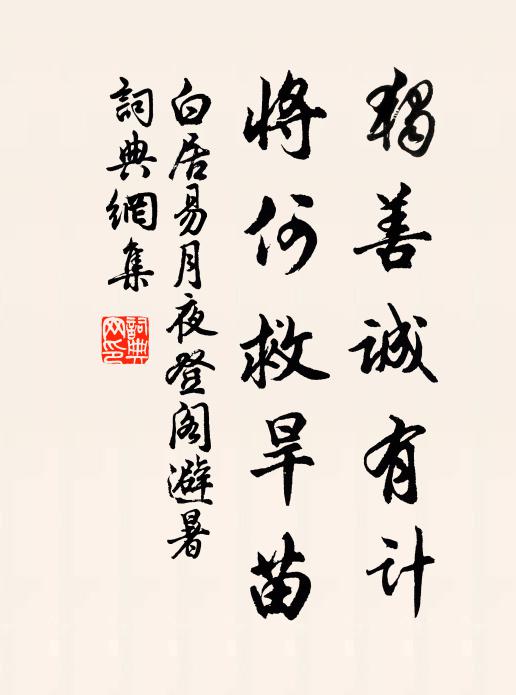 獨善誠有计
將何救旱苗
白居易月夜登阁避暑
詞典網集
詞典网印